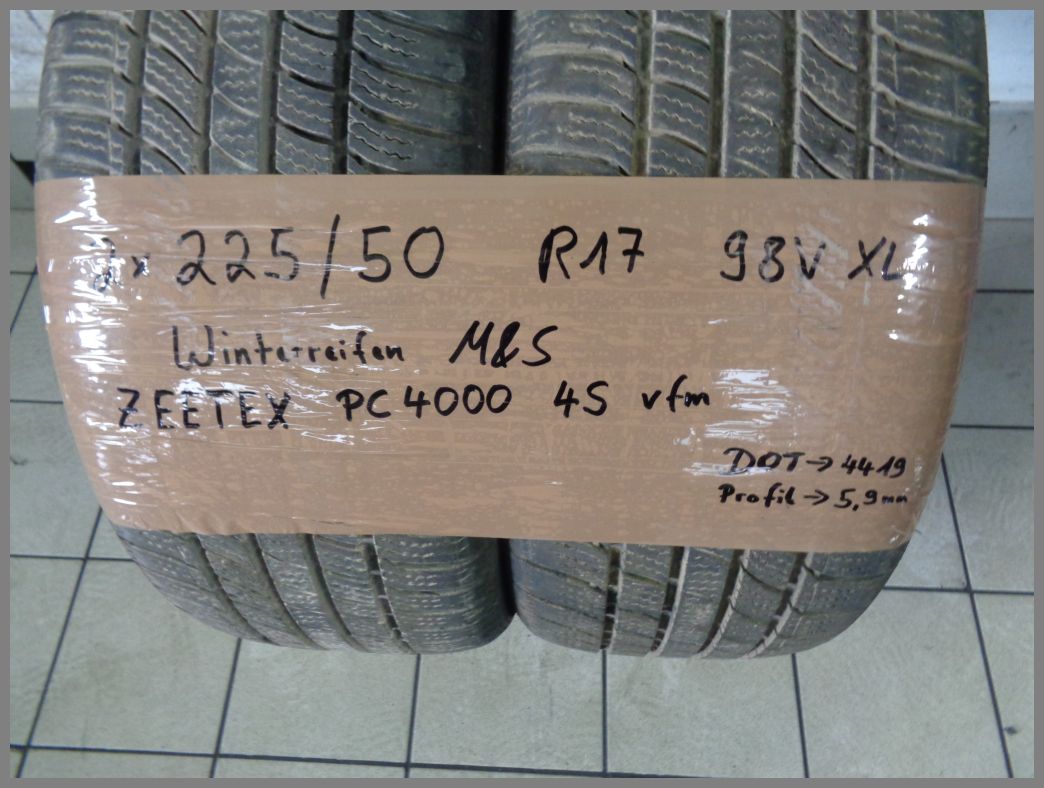 2x 225/50 R17 98V XL
Winterreifen M&S
ZEETEX PC4000 4S vfm
DOT→4419
Profil→5,9mm